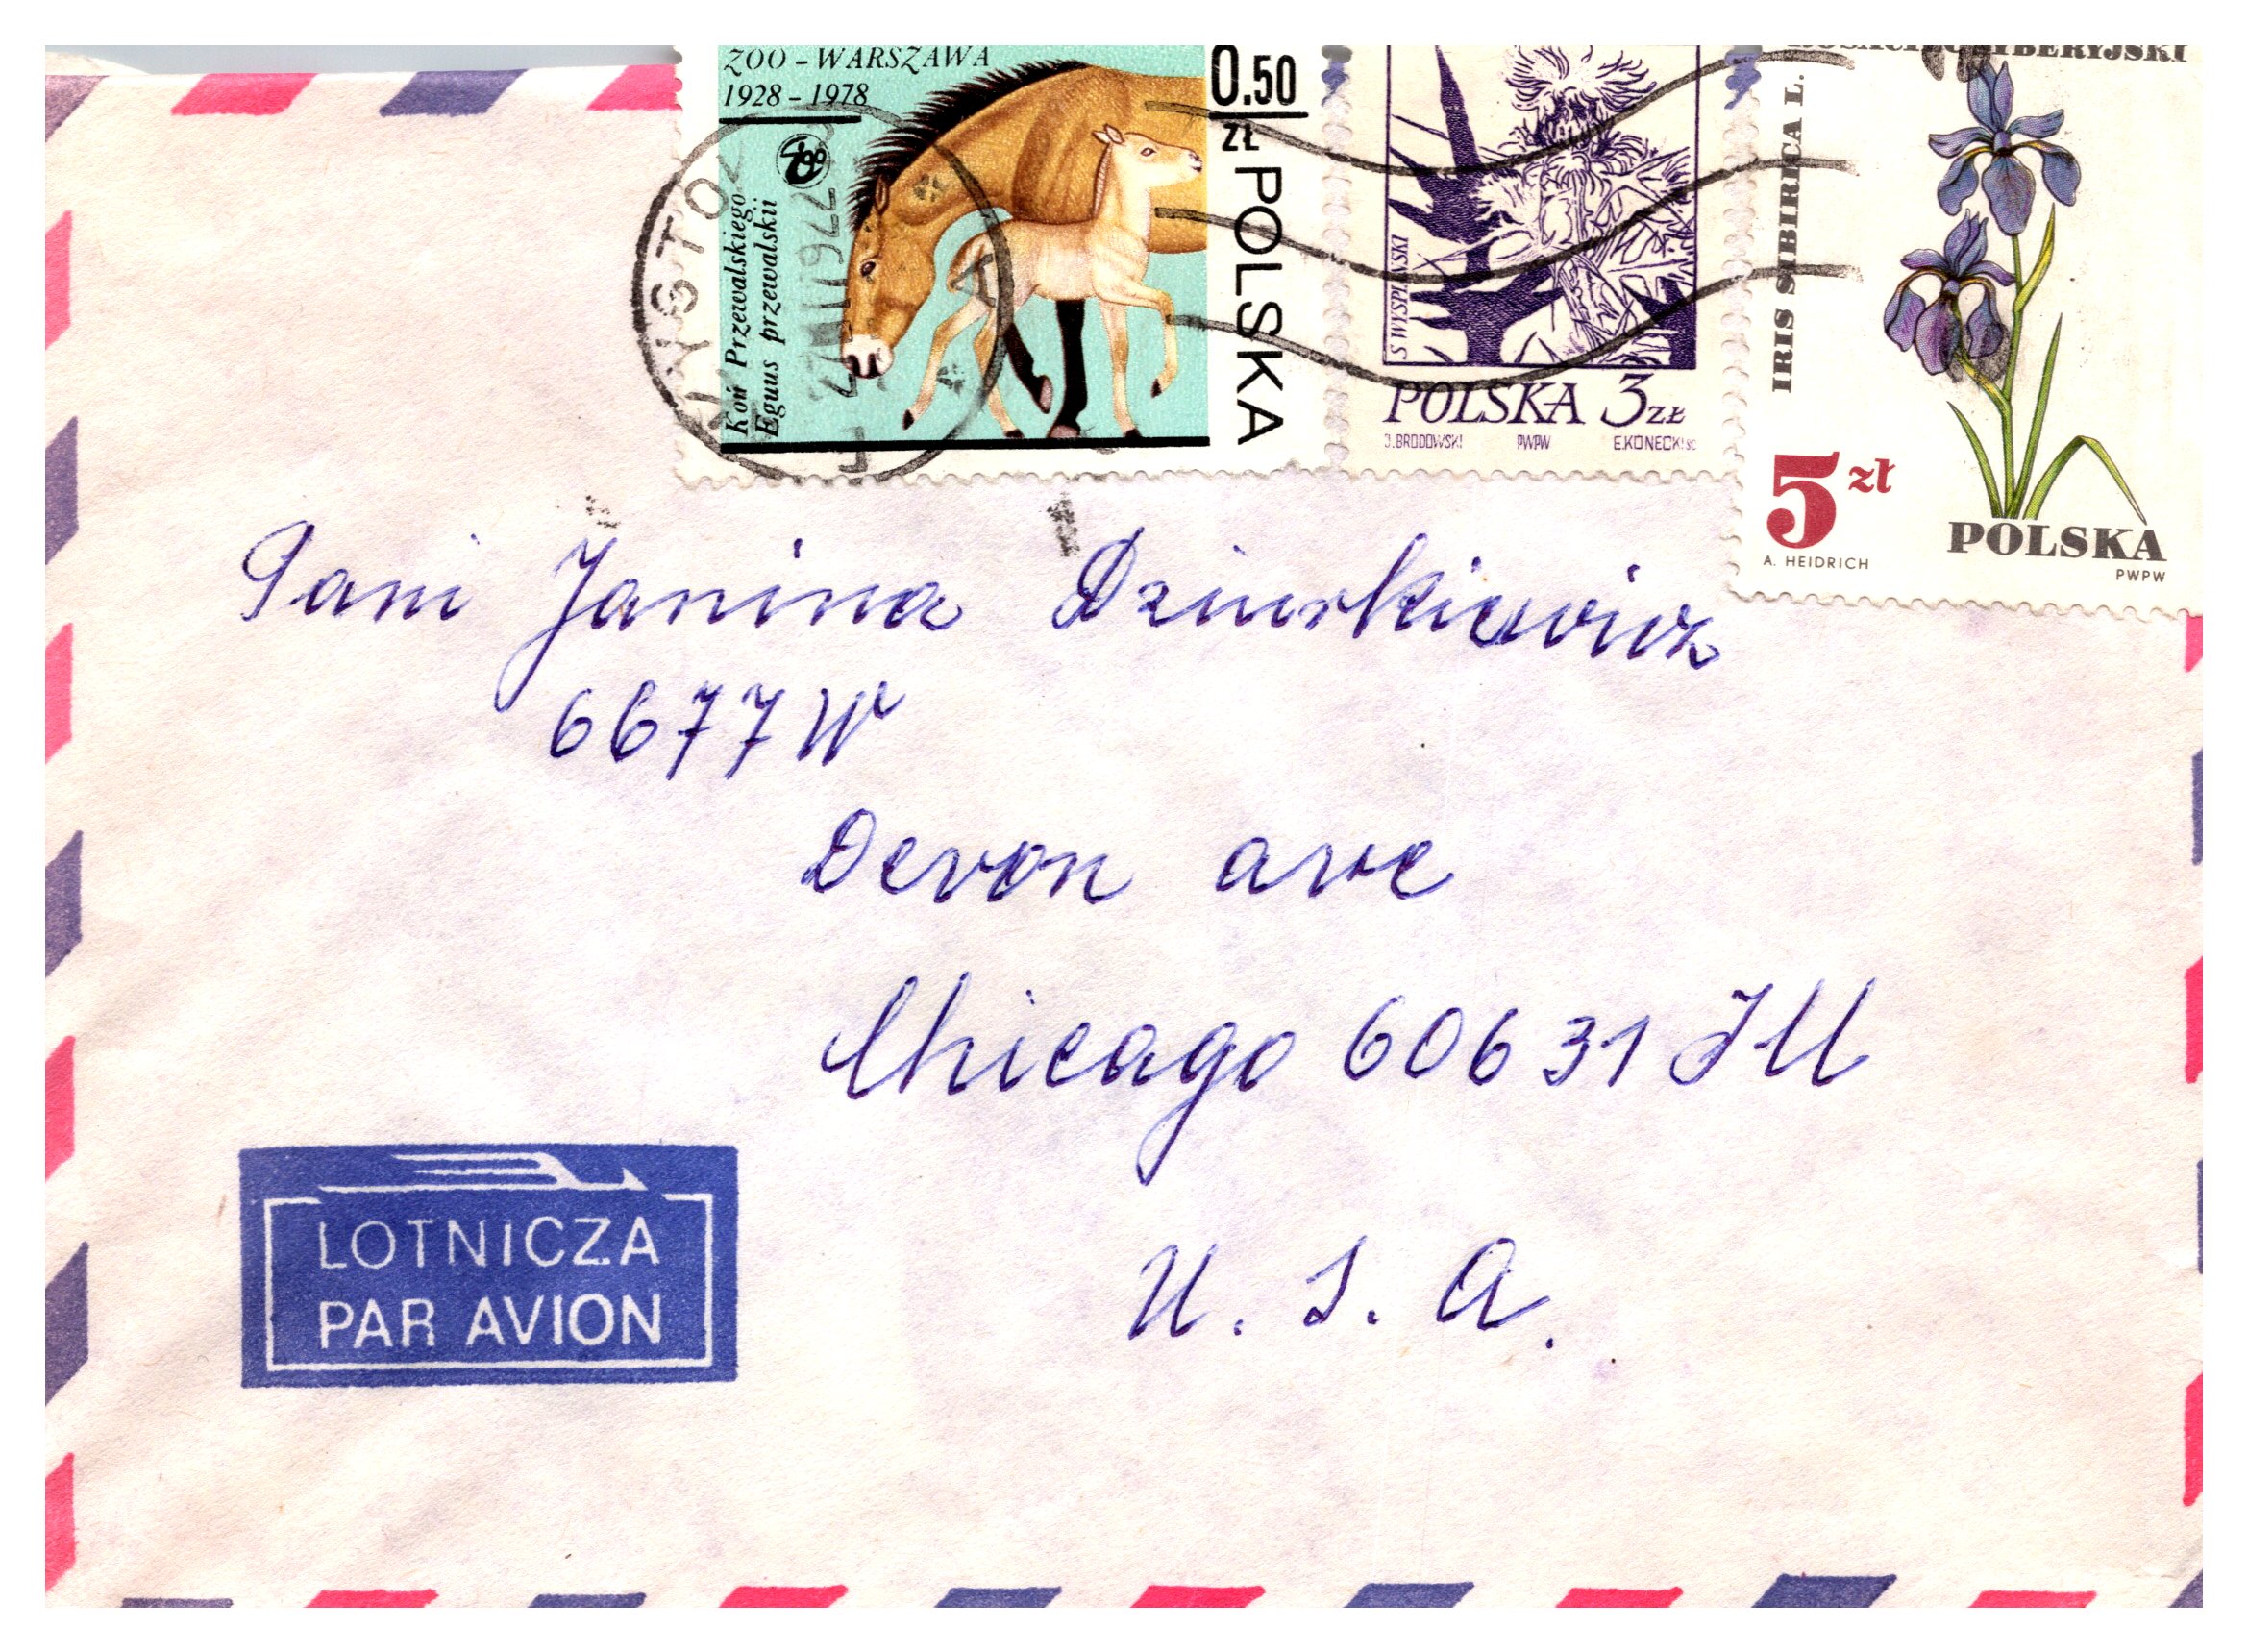 ZOO - WARSZAWA
1928 - 1978
Koń Przewalskiego
Eguus przewalskii
Zoo
0.50
ZŁ
POLSKA
S WYSPIAŃSKI
POLSKA 3 ZŁ
J. BRODOWSKI PWPW E.KONECKI sc.
SYBERYJSKI
IRIS SIBIRICA L.
5 zł
POLSKA
A. HEIDRICH
PWPW
Pani Janina Dziurkiewicz
6677 W
Devon ave
Chicago 60631 Ill
U. S. A.
LOTNICZA
PAR AVION